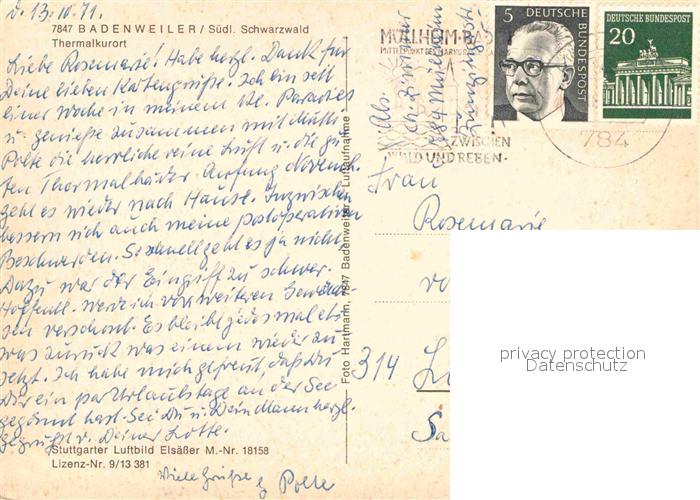 d. 13.10.71.
7847 BADENWEILER / Südl. Schwarzwald
Thermalkurort
Liebe Rosemarie! Habe herzl. Dank für
Deine lieben Kartengrüße. Ich bin seit
einer Woche in meinem kl. Paradies
u. genieße zusammen mit
Polte die herrliche reine Luft u. die gu-
ten Thermalbäder. Anfang November
geht es wieder nach Hause. Inzwischen
bessern sich auch meine postoperativen
Beschwerden. So schnell geht es ja nicht
Dazu war der Eingriff zu schwer.
Hoffentl. werd ich vor weiteren
verschont. Es bleibt jedesmal et-
was zurück was einem wieder zu
setzt. Ich habe mich gefreut, daß Du
Dir ein paar Urlaubstage an der See
gegönnt hast. Sei Du u. Dein Mann herzl.
gegrüßt v. Deiner Lotte.
Stuttgarter Luftbild Elsäßer M.-Nr. 18158
Lizenz-Nr. 9/13 381
Viele Grüße
Polte
Foto Hartmann, 7847 Badenweiler · Luftaufnahme
MÜLLHEIM-BADEN
ZWISCHEN
WALD UND REBEN
Abs.
784 Müllheim
5
DEUTSCHE BUNDESPOST
DEUTSCHE BUNDESPOST
20
784
Frau
Rosemarie
314
privacy protection
Datenschutz